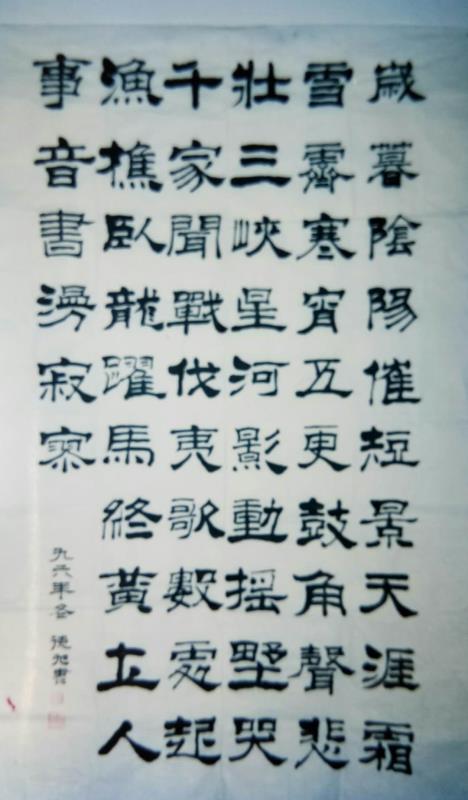 歲暮陰陽催短景天涯霜
雪霽寒宵五更鼓角聲悲
壯三峽星河影動搖野哭
千家聞戰伐夷歌數處起
漁樵臥龍躍馬終黃土人
事音書漫寂寥
九六年冬 德旭書